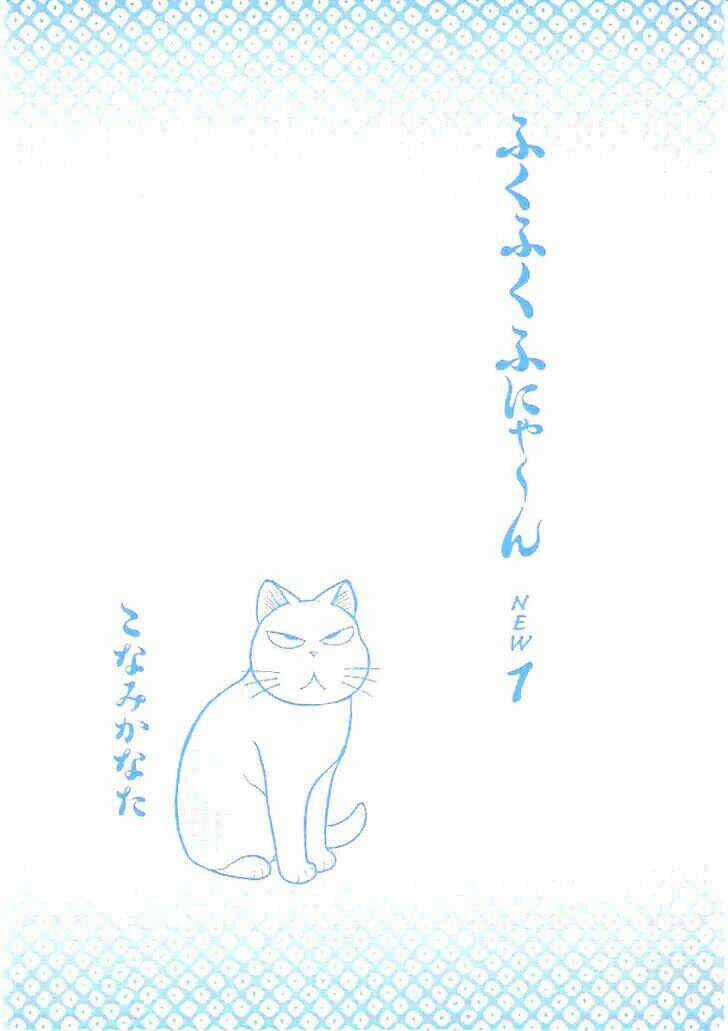 ふくふくふにゃ〜ん
NEW
1
こなみかなた